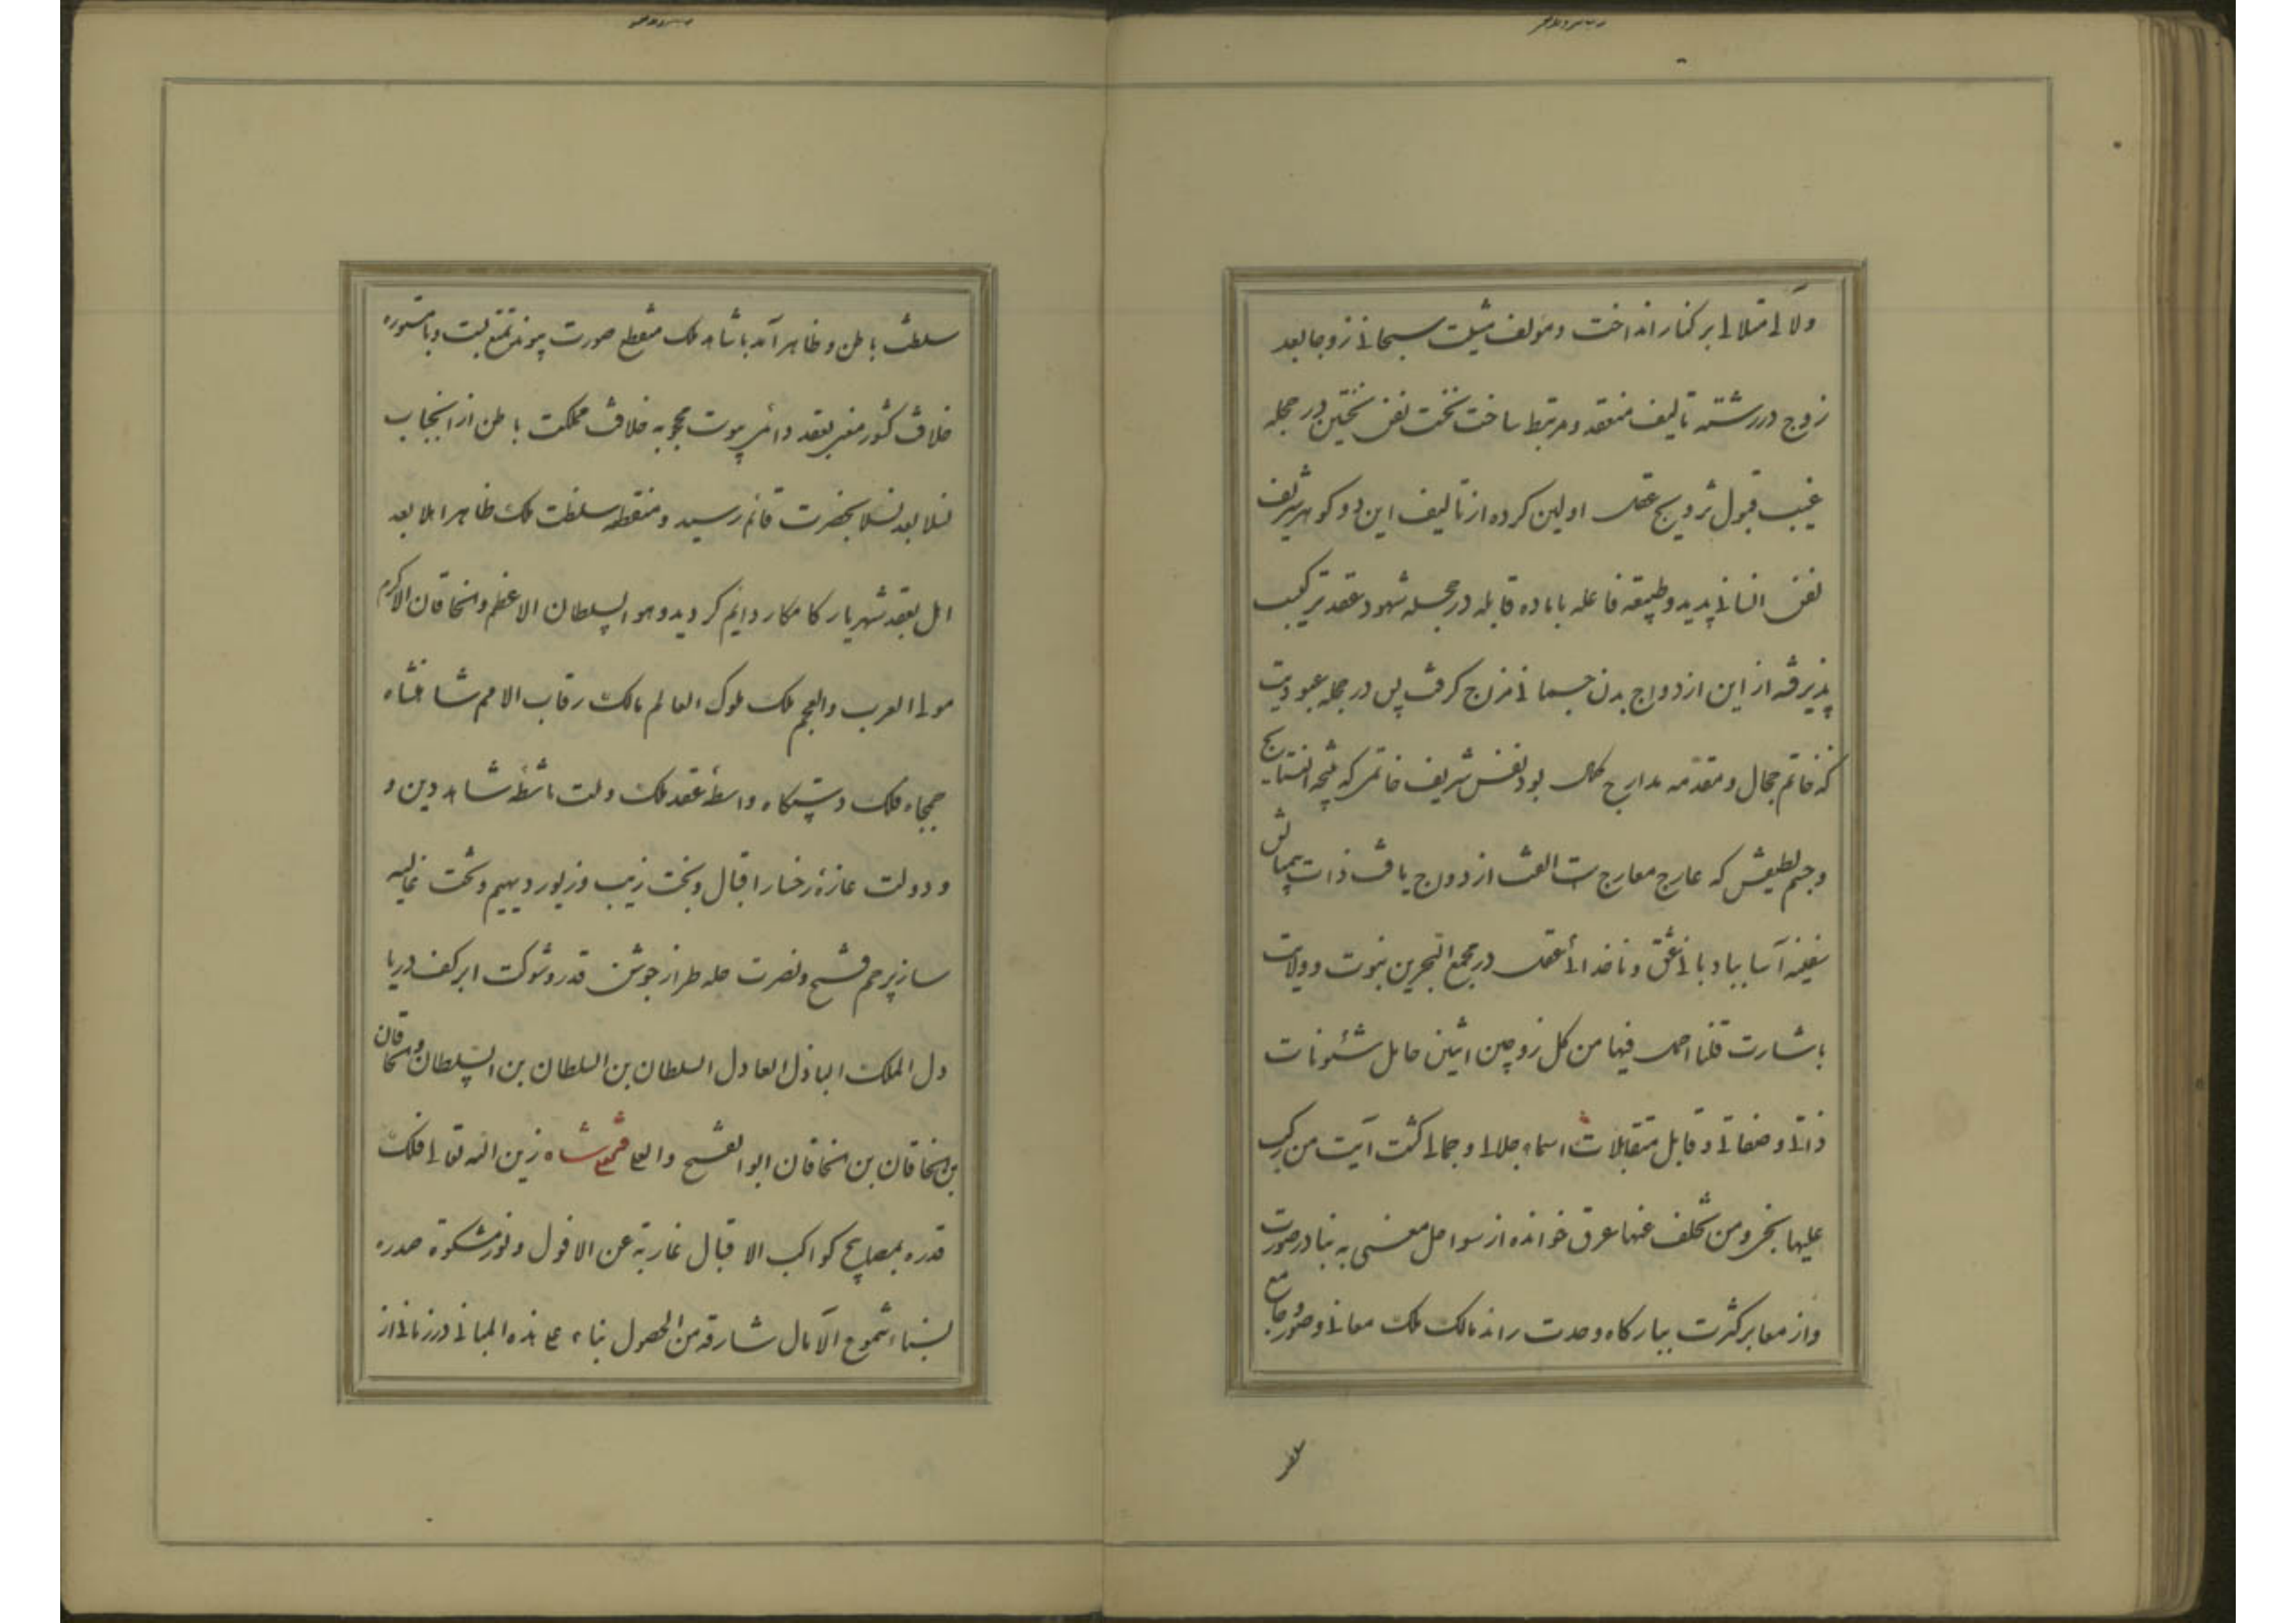 ولآلی متلالی برکنار انداخت و مؤلف مشیت سبحانی زوجا بعد
زوج در رشته تألیف منعقد و مرتبط ساخت نخست نفس نخستین در حجله
غیب قبول تزویج عقل اولین کرده از تألیف این دو گوهر شریف
نفس انسانی پدید و طبیعه فاعله با ماده قابله در حجله شهود عقد ترکیب
پذیرفته از این ازدواج بدن جسمانی مزاج گرفت پس در حجله عبودیت
که خاتم جمال و مقدمه مدارج کمال بود نفس شریف خاتمی که نتیجه
وجسم لطیفش که عارج معارج ازدواج یافت ذات بیمثالش
سفینه آسا ببادبانی عشق و ناخدائی عقل در مجمع البحرین نبوت و ولایت
باشارت قلنا احمل فیها من کل زوجین اثنین حامل شئونات
ذاتی و صفاتی و قابل متقابلات اسماء جلالی و جمالی گشت آیت من رکب
علیها نجی و من تخلف عنها غرق خوانده از سواحل معنی به بنادر صورت
و از معابر کثرت ببارگاه وحدت راند مالک ملک معانی و صور و جامع
سلطنت باطن و ظاهر آمد با شاهد ملک منقطع صورت پیوند تمتع بست و با مستوره
خلافت کشور معنی بعقد دائمی پیوست محجوبه خلافت مملکت باطن از آنجناب
نسلا بعد نسلا بحضرت قائم رسید و منقطعه سلطنت ملک ظاهر اهلا بعد
اهل بعقد شهریار کامکار دایم گردید و هو السلطان الاعظم و الخاقان الاکرم
مولی العرب والعجم ملک ملوک العالم مالک رقاب الامم شاهنشاه
جمجاه فلک دستگاه واسطهٔ عقد ملک و ملت ماشطهٔ شاهد دین و
و دولت غازهٔ رخسار اقبال و بخت زیب و زیور دیهیم و تخت غالیه
ساز پرچم فتح و نصرت حله طراز جوشن قدر و شوکت ابر کف دریا
دل الملک الباذل العادل السلطان بن السلطان بن السلطان والخاقان
بن الخاقان بن الخاقان ابو الفتح والعلی فتحعلیشاه زین الله تعالی فلک
قدره بمصابیح کواکب الاقبال غاربة عن الافول و نور مشکوة صدره
بسناء شموع الآمال شارقة من الحصول بناء علی هذه المبانی در زمانی از